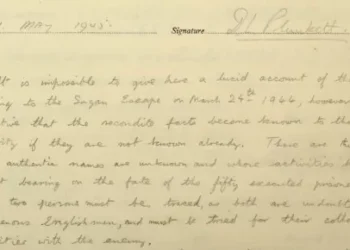 MAY 1945 Signature D L Plunkett
It is impossible to give here a lucid account of the
to the Sagan Escape on March 24th 1944, however
that the recondite facts become known to the
if they are not known already. There are th
authentic names are unknown and whose activities h
bearing on the fate of the fifty executed prisone
two persons must be traced, as both are undoubt
Englishmen, and must be tried for their colla
with the enemy.